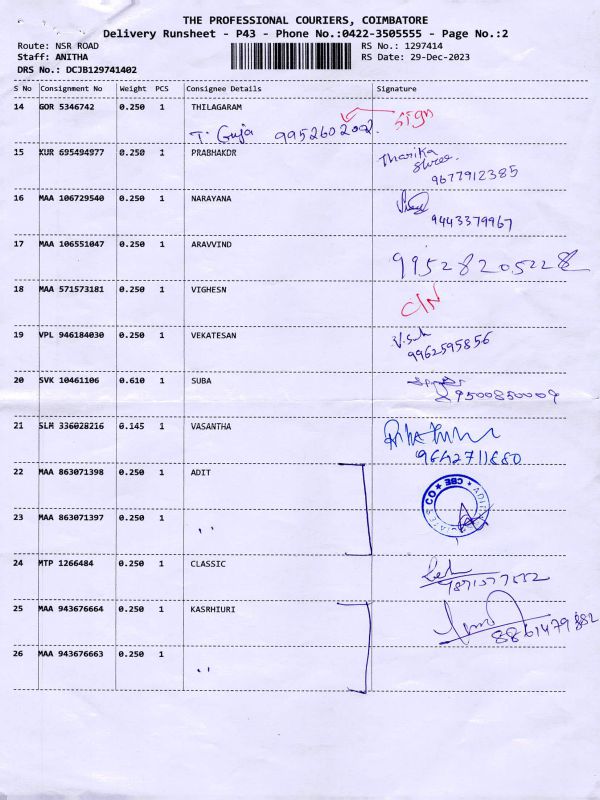 THE PROFESSIONAL COURIERS, COIMBATORE
Delivery Runsheet - P43 - Phone No.:0422-3505555 - Page No.:2
Route: NSR ROAD RS No.: 1297414
Staff: ANITHA RS Date: 29-Dec-2023
DRS No.: DCJB129741402
S No Consignment No Weight PCS Consignee Details Signature
14 GOR 5346742 0.250 1 THILAGARAM
T. Guja 9952602002. Sign
15 KUR 695494977 0.250 1 PRABHAKDR Tharika
Shree.
9677912385
16 MAA 106729540 0.250 1 NARAYANA
9443379967
17 MAA 106551047 0.250 1 ARAVVIND
18 MAA 571573181 0.250 1 VIGHESN C/N
19 VPL 946184030 0.250 1 VEKATESAN
9962595856
20 SVK 10461106 0.610 1 SUBA
9500850009
21 SLM 336028216 0.145 1 VASANTHA
22 MAA 863071398 0.250 1 ADIT
CBE
23 MAA 863071397 0.250 1 ,,
24 MTP 1266484 0.250 1 CLASSIC
25 MAA 943676664 0.250 1 KASRHIURI
26 MAA 943676663 0.250 1 ,,